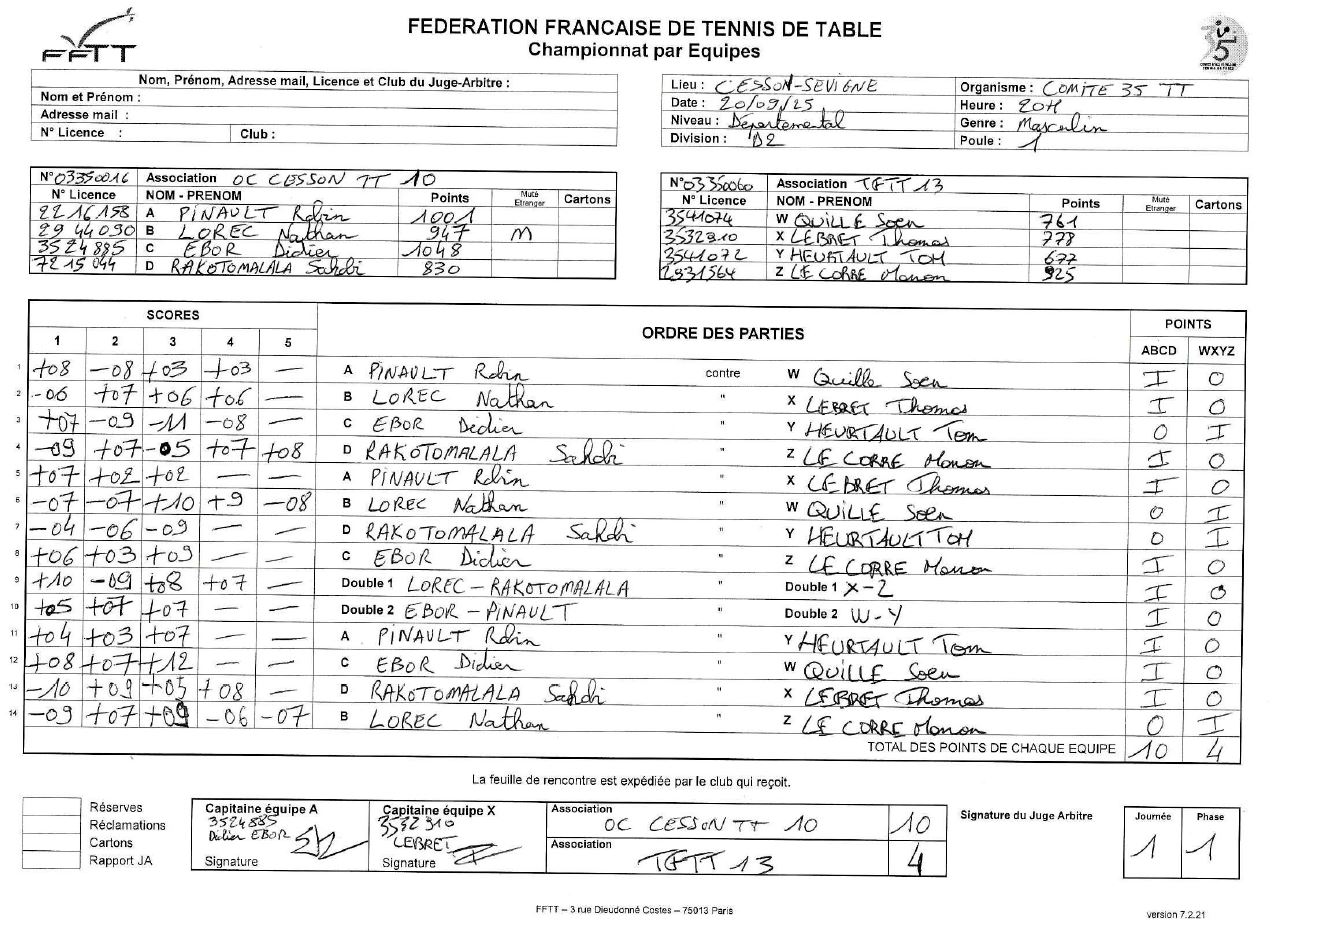 FFTT
FEDERATION FRANCAISE DE TENNIS DE TABLE
Championnat par Equipes
Nom, Prénom, Adresse mail, Licence et Club du Juge-Arbitre :
Nom et Prénom :
Adresse mail :
N° Licence : Club :
Lieu : CESSON-SEVIGNE Organisme : COMITE 35 TT
Date : 20/09/25 Heure : 20H
Niveau : Départemental Genre : Masculin
Division : D2 Poule : 1
N°03350016 Association OC CESSON TT 10
N° Licence NOM - PRENOM Points Muté Etranger Cartons
2216158 A PINAULT Robin 1001
2944030 B LOREC Nathan 947 M
3524885 C EBOR Didier 1048
7215044 D RAKOTOMALALA 830
N°03350060 Association TFTT 13
N° Licence NOM - PRENOM Points Muté Etranger Cartons
3541074 W QUILLE Soen 761
3532910 X LEBRET Thomas 778
3541072 Y HEURTAULT TOM 677
2931564 Z LE CORRE Manon 925
SCORES ORDRE DES PARTIES POINTS
1 2 3 4 5 ABCD WXYZ
1 +08 -08 +03 +03 — A PINAULT Robin contre W Quille Soen I 0
2 -06 +07 +06 +06 — B LOREC Nathan " X LEBRET Thomas I 0
3 +07 -09 -11 -08 — C EBOR Didier " Y HEURTAULT Tom 0 I
4 -09 +07 -05 +07 +08 D RAKOTOMALALA " Z LE CORRE Manon I 0
5 +07 +02 +02 — — A PINAULT Robin " X LEBRET Thomas I 0
6 -07 -07 +10 +9 -08 B LOREC Nathan " W QUILLE Soen 0 I
7 -04 -06 -09 — — D RAKOTOMALALA " Y HEURTAULT TOM 0 I
8 +06 +03 +09 — — C EBOR Didier " Z LE CORRE Manon I 0
9 +10 -09 +08 +07 — Double 1 LOREC-RAKOTOMALALA " Double 1 X-Z I 0
10 +05 +07 +07 — — Double 2 EBOR-PINAULT " Double 2 W-Y I 0
11 +04 +03 +07 — — A PINAULT Robin " Y HEURTAULT Tom I 0
12 +08 +07 +12 — — C EBOR Didier " W QUILLE Soen I 0
13 -10 +09 +05 +08 — D RAKOTOMALALA " X LEBRET Thomas I 0
14 -09 +07 +09 -06 -07 B LOREC Nathan " Z LE CORRE Manon 0 I
TOTAL DES POINTS DE CHAQUE EQUIPE 10 4
La feuille de rencontre est expédiée par le club qui reçoit.
Réserves
Réclamations
Cartons
Rapport JA
Capitaine équipe A
3524885
Didier EBOR
Signature
Capitaine équipe X
3532910
LEBRET
Signature
Association
OC CESSON TT 10 10
Association
TFTT 13 4
Signature du Juge Arbitre
Journée Phase
1 1
FFTT – 3 rue Dieudonné Costes – 75013 Paris
version 7.2.21